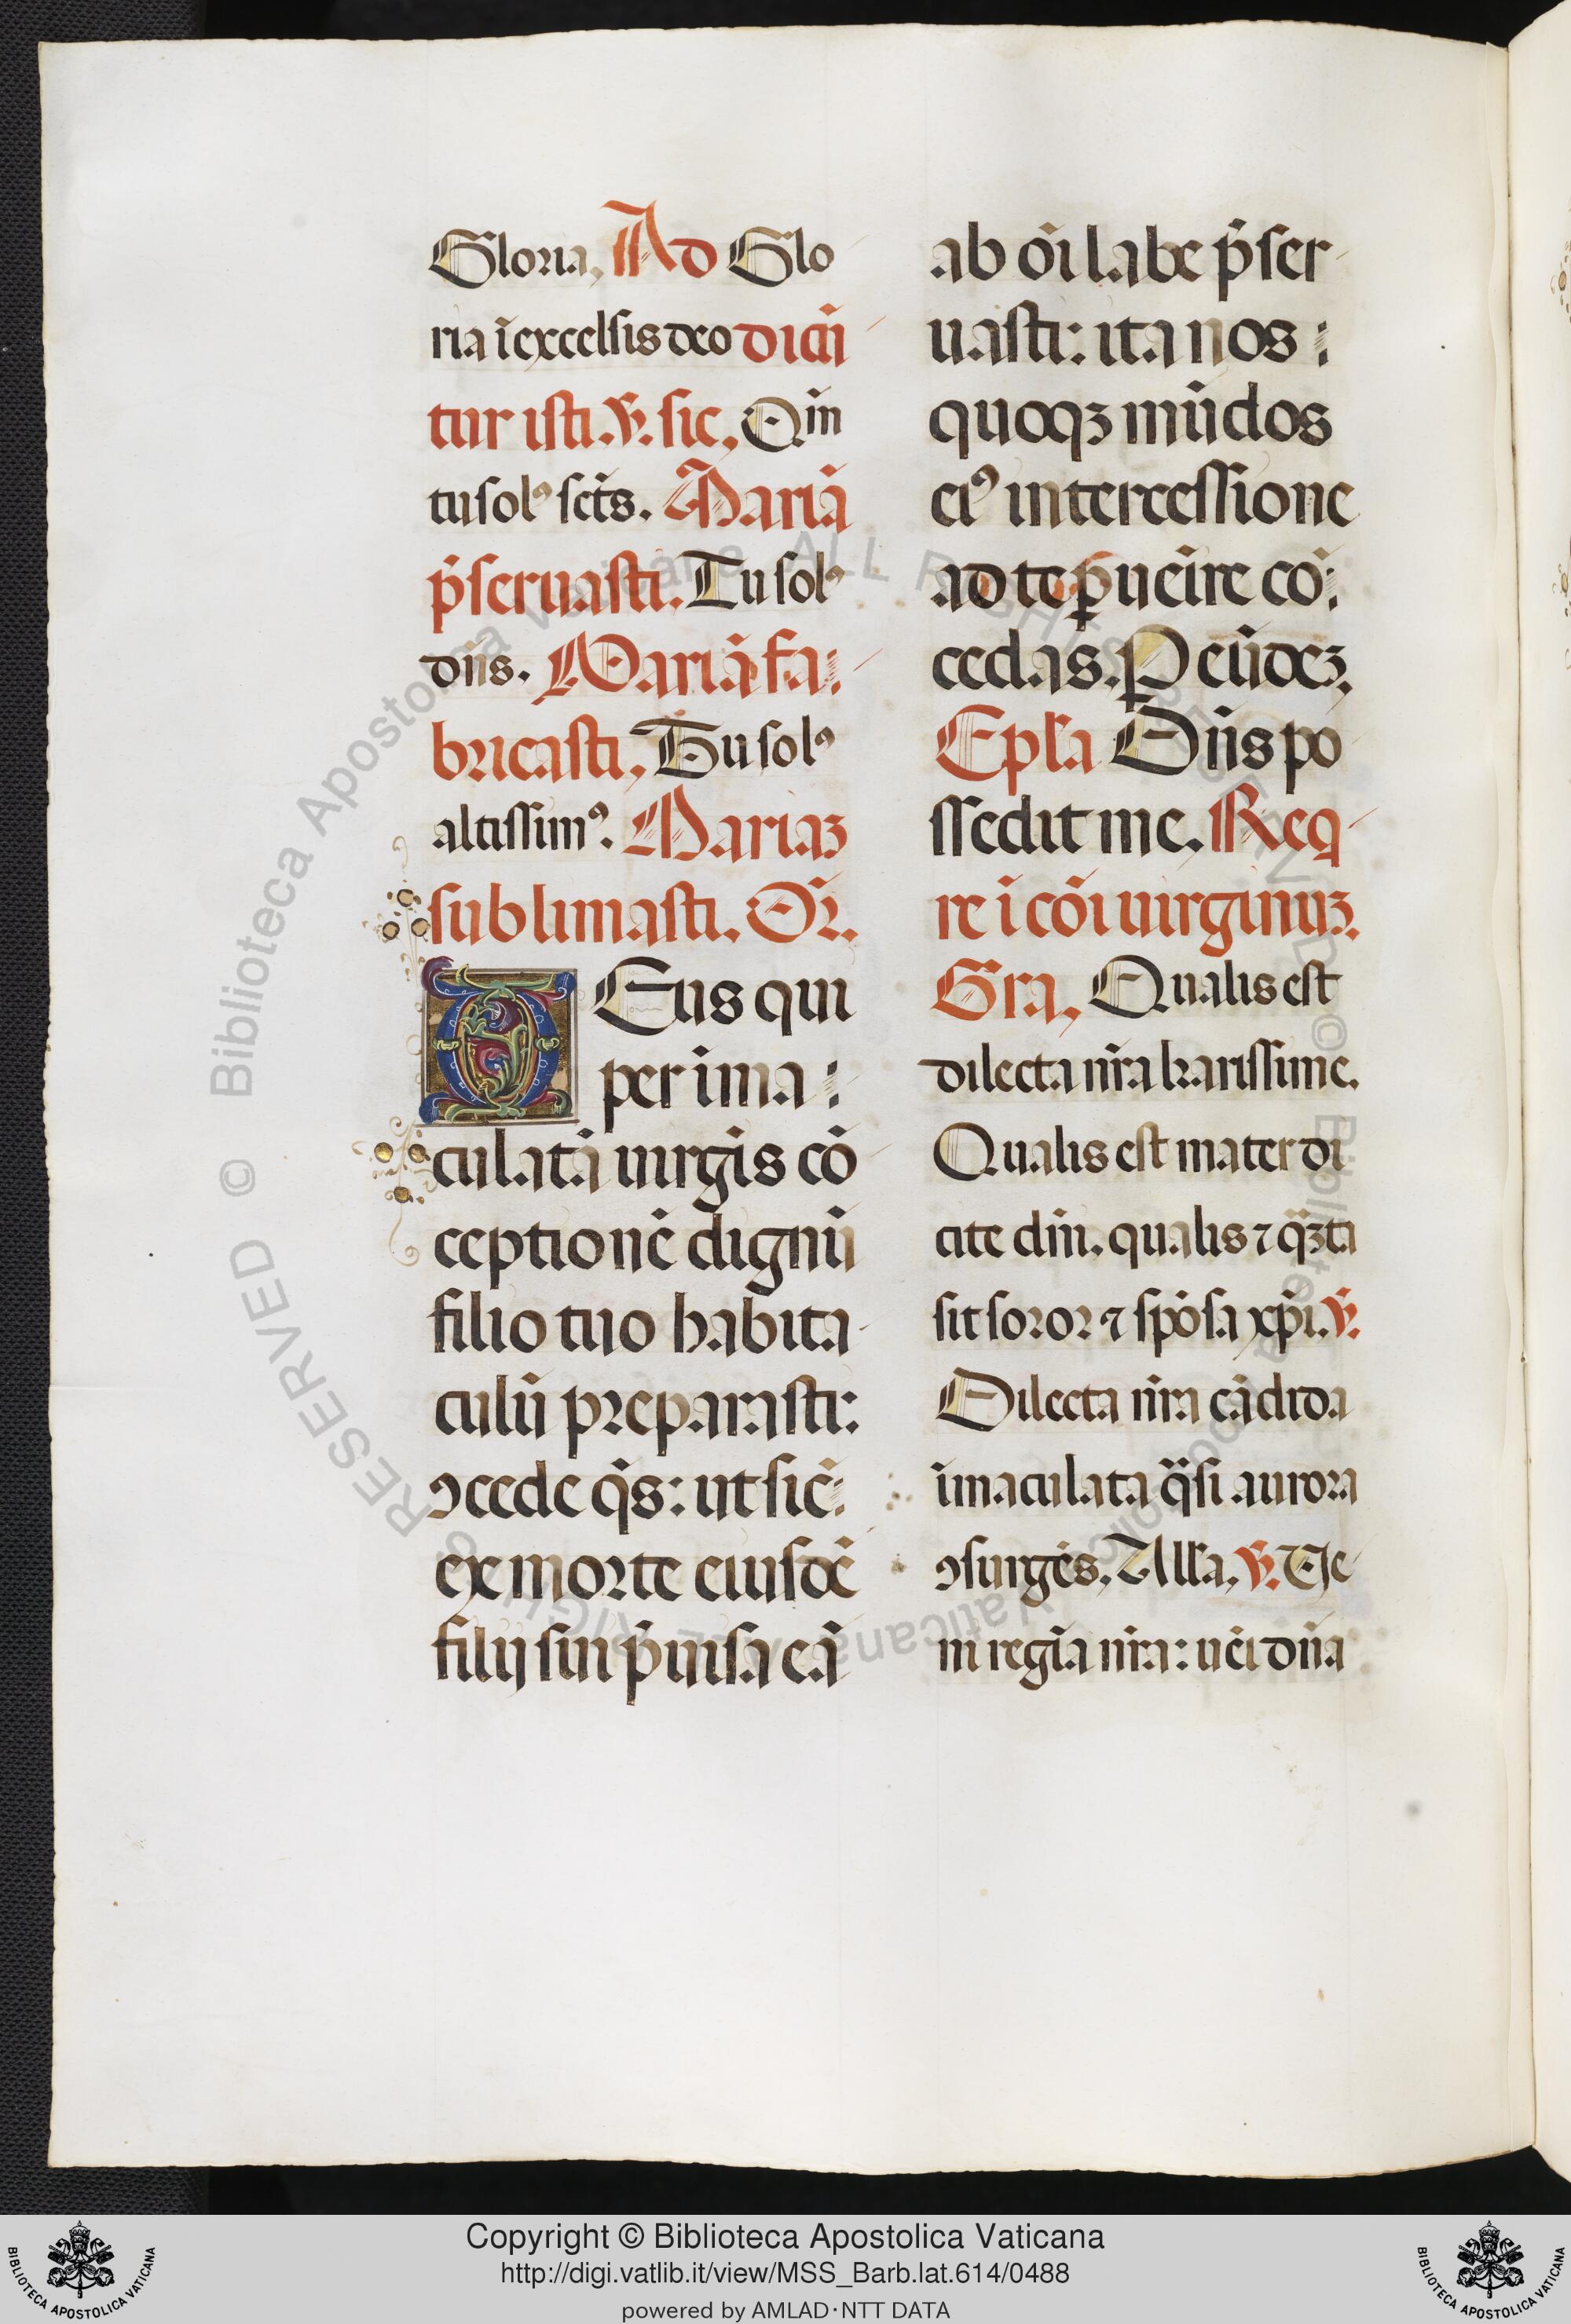 Gloria, Ad Glo
ria ī excelsis deo dicū
tur isti. ℣. sic, Qm̄
tu solꝰ sc̄ts. Mariā
p̄seruasti. Tu solꝰ
dn̄s. Mariā fa:
bricasti, Tu solꝰ
altissimꝰ. Mariaꝫ
sublimasti. Or̄.
Eus qui
per ima:
culatā uirgīs cō
ceptionē dignū
filio tuo habita
culū preparasti:
ꝯcede q̄s: ut sic̄:
ex morte eiusdē
filij sui p̄uisa eā
ab oī labe p̄ser
uasti: ita nos:
quoqꝫ mūdos
eiꝰ intercessione
ad te ꝑueīre cō:
cedas. P eūdeꝫ.
Epl̄a Dn̄s po
ssedit me. Req
re ī cōi uirginuꝫ.
Gra, Qualis est
dilecta nr̄a karissime.
Qualis est mater di
cite dn̄i. qualis ⁊ q̄ꝫta
sit soror ⁊ spōsa xp̄i. ℣.
Dilecta nr̄a cādida
īmaculata q̄si aurora
ꝯsurgēs, All̄a, ℣. Ue
ni regīa nr̄a: uēi dn̄a
Copyright © Biblioteca Apostolica Vaticana
http://digi.vatlib.it/view/MSS_Barb.lat.614/0488
powered by AMLAD·NTT DATA
BIBLIOTECA APOSTOLICA VATICANA
BIBLIOTECA APOSTOLICA VATICANA